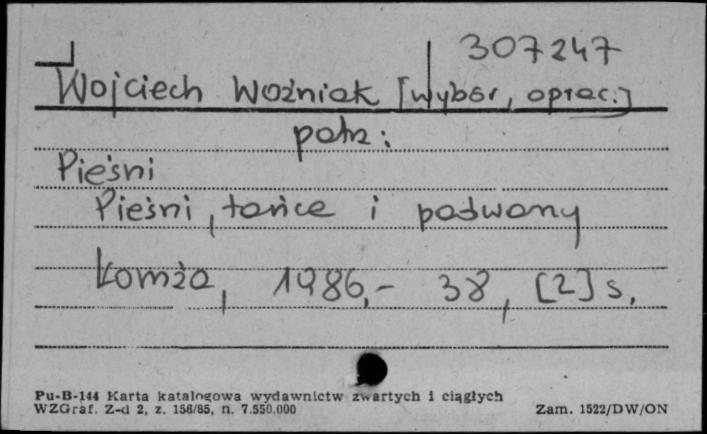 307247
Wojciech Woźniak [wybór, oprac.]
patrz:
Pieśni
Pieśni, tańce i padwany
Łomża, 1986,- 38, [2] s.
Pu-B-144 Karta katalogowa wydawnictw zwartych i ciągłych
WZGraf. Z-d 2, z. 156/85, n. 7.550.000
Zam. 1522/DW/ON